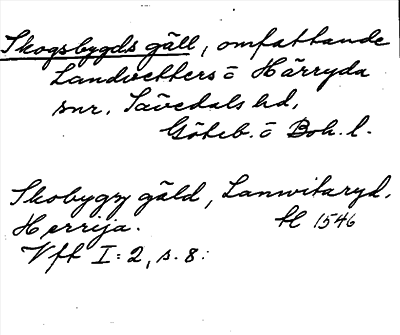 Skogsbygds gäll, omfattande
Landvetters o Härryda
snr. Sävedals hd,
Göteb. o Boh. l.
Skobygz gäld, Lanwitaryd.
Herrija. H 1546
Vft I:2, s. 8.